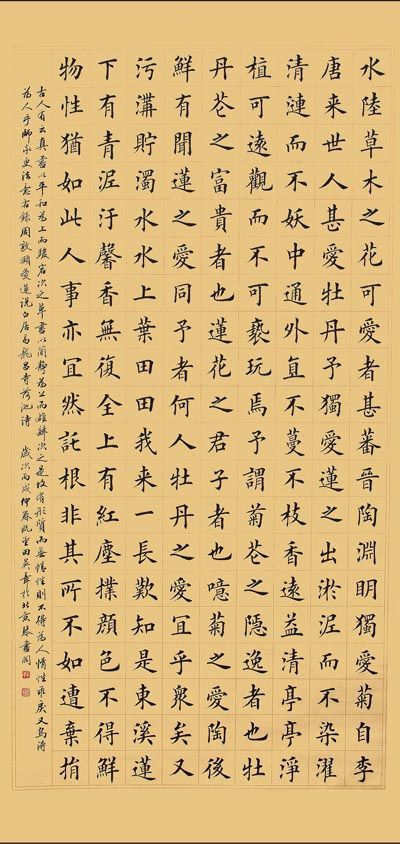 水陸草木之花可愛者甚蕃晉陶淵明獨愛菊自李
唐来世人甚愛牡丹予獨愛蓮之出淤泥而不染濯
清漣而不妖中通外直不蔓不枝香遠益清亭亭淨
植可遠觀而不可褻玩焉予謂菊花之隱逸者也牡
丹花之富貴者也蓮花之君子者也噫菊之愛陶後
鮮有聞蓮之愛同予者何人牡丹之愛宜乎衆矣又
污溝貯濁水水上葉田田我来一長歎知是東溪蓮
下有青泥汙馨香無復全上有紅塵撲顏色不得鮮
物性猶如此人事亦宜然託根非其所不如遭棄捐
古人有云真書以平和為上而駿宕次之草書以簡靜為上而雄辯次之是故有形質而無情性則不得為人情性乖戾又烏得
為人乎師右錄周敦頤愛蓮說白居易龍昌寺荷池詩 歲次丙戌仲春田英章於北京書閣